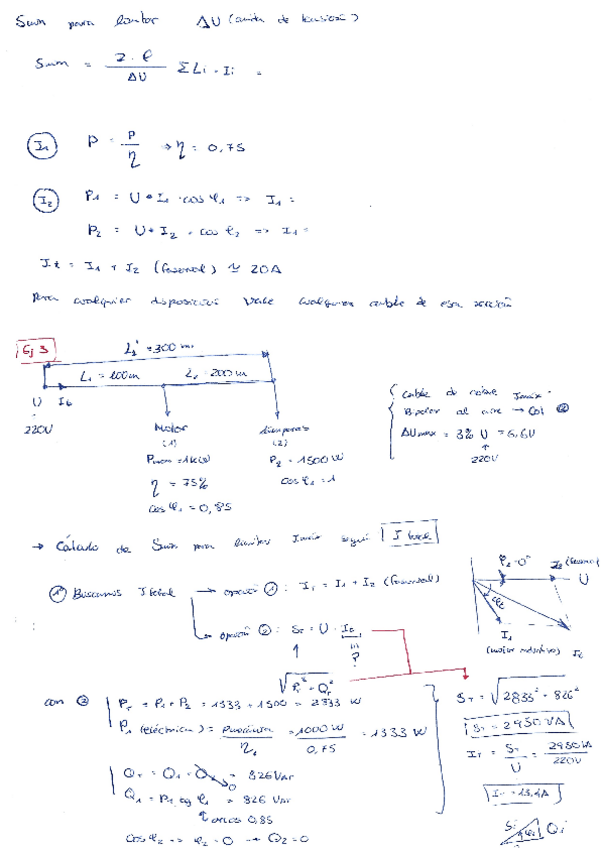 Smin para limitar ΔU (caida de tensión)
Smin = 2·ρ / ΔU ΣLi·Ii =
I1 P = P/η ⇒ η = 0,75
I2 P1 = U·I1·cos φ1 => I1 =
P2 = U·I2·cos φ2 => I1 =
It = I1 + I2 (fasorial) ≃ 20A
Para cualquier dispositivo vale cualquier cable de esa sección
Ej 3
L2' = 300 m
L1 = 100m L2 = 200m
U It
220V
Motor (1)
Pmec = 1kW
η = 75%
cos φ1 = 0,85
lámparas (2)
P2 = 1500 W
cos φ2 = 1
Cable de Imáx
Bipolar al aire → Col
ΔUmax = 3% U = 6,6V
220V
→ Cálculo de Smin para limitar Imáx según I total
① Buscamos I total → opción ①: IT = I1 + I2 (fasorial)
→ opción ②: ST = U · It
?
√PT² - QT²
φ2 = 0° I2 (fasorial)
U
φt
I1
(motor inductivo) It
con ② PT = P1 + P2 = 1333 + 1500 = 2833 W
P1 (eléctrica) = Pmecánica / η1 = 1000 W / 0,75 = 1333 W
QT = Q1 = Q2 = 826 VAr
0
Q1 = P1 tg φ1 = 826 VAr
arcos 0,85
cos φ2 => φ2 = 0 → Q2 = 0
ST = √2833² - 826²
ST = 2950 VA
IT = ST / U = 2950 VA / 220V
IT = 13,4A
Si φi Qi